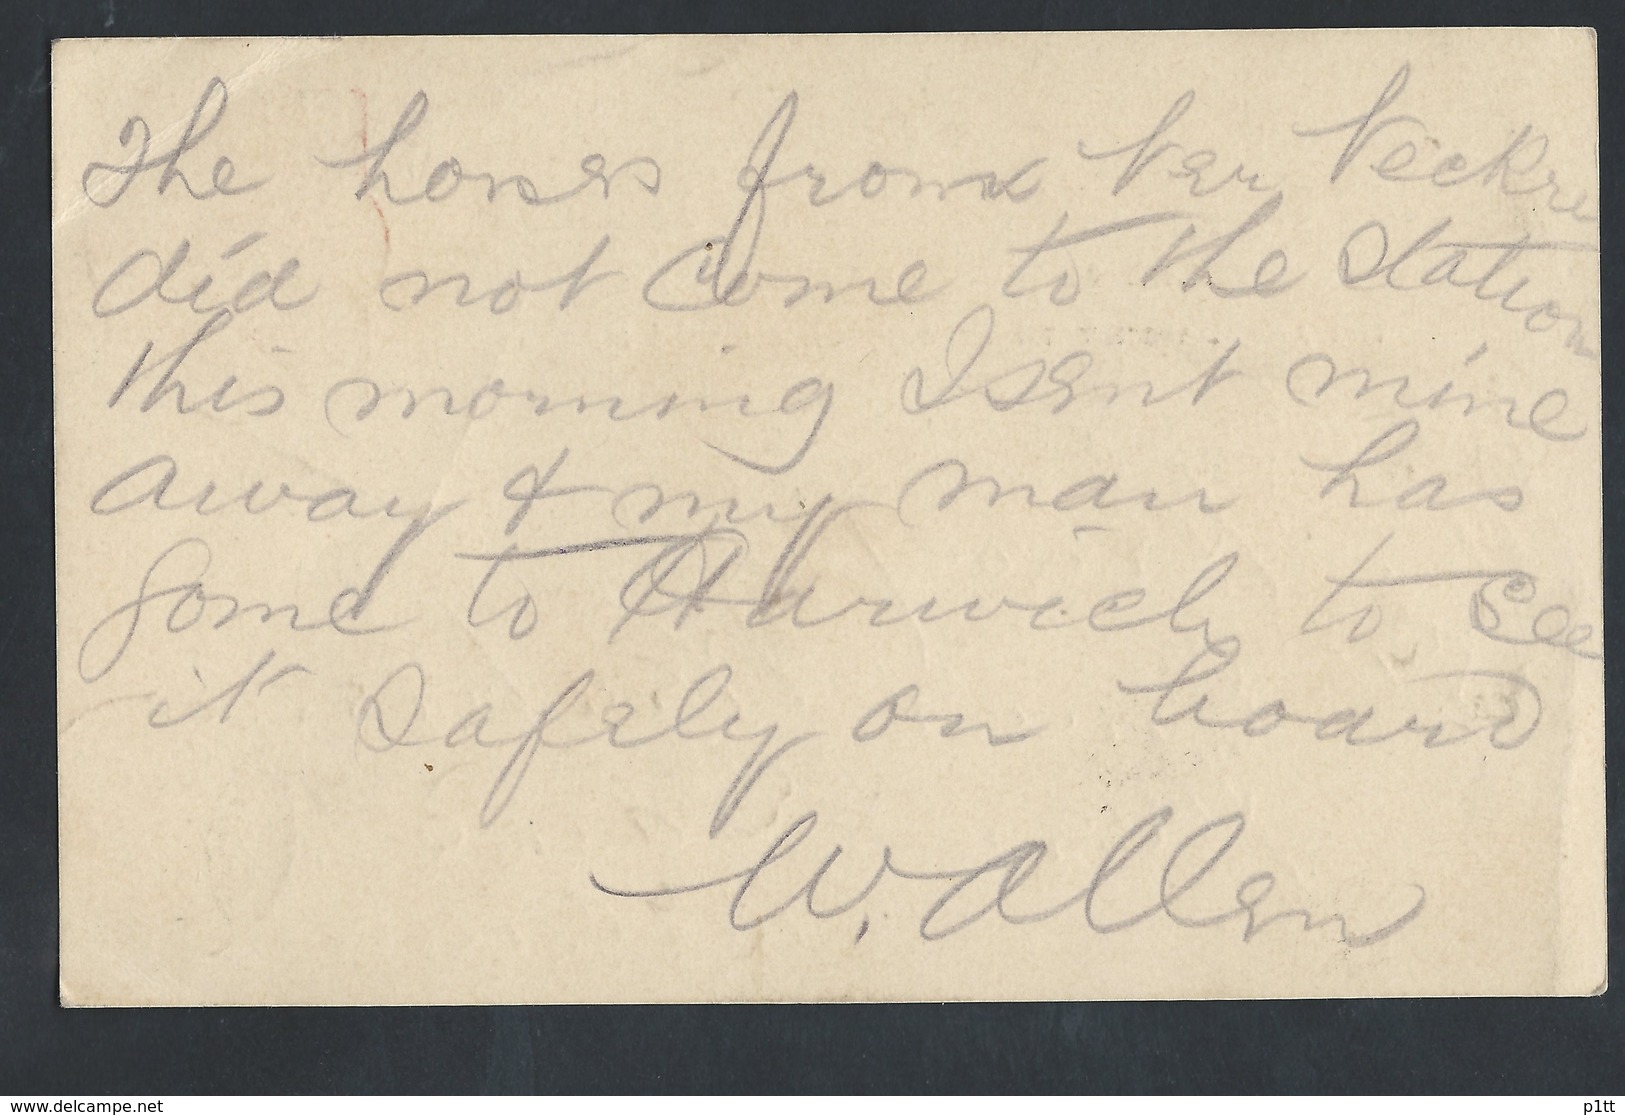 The horses from Ver Veckre
did not Come to the Station
this morning I sent mine
away & my man has
gone to Harwich to See
it Safely on board
W. Allen
www.delcampe.net
p1tt